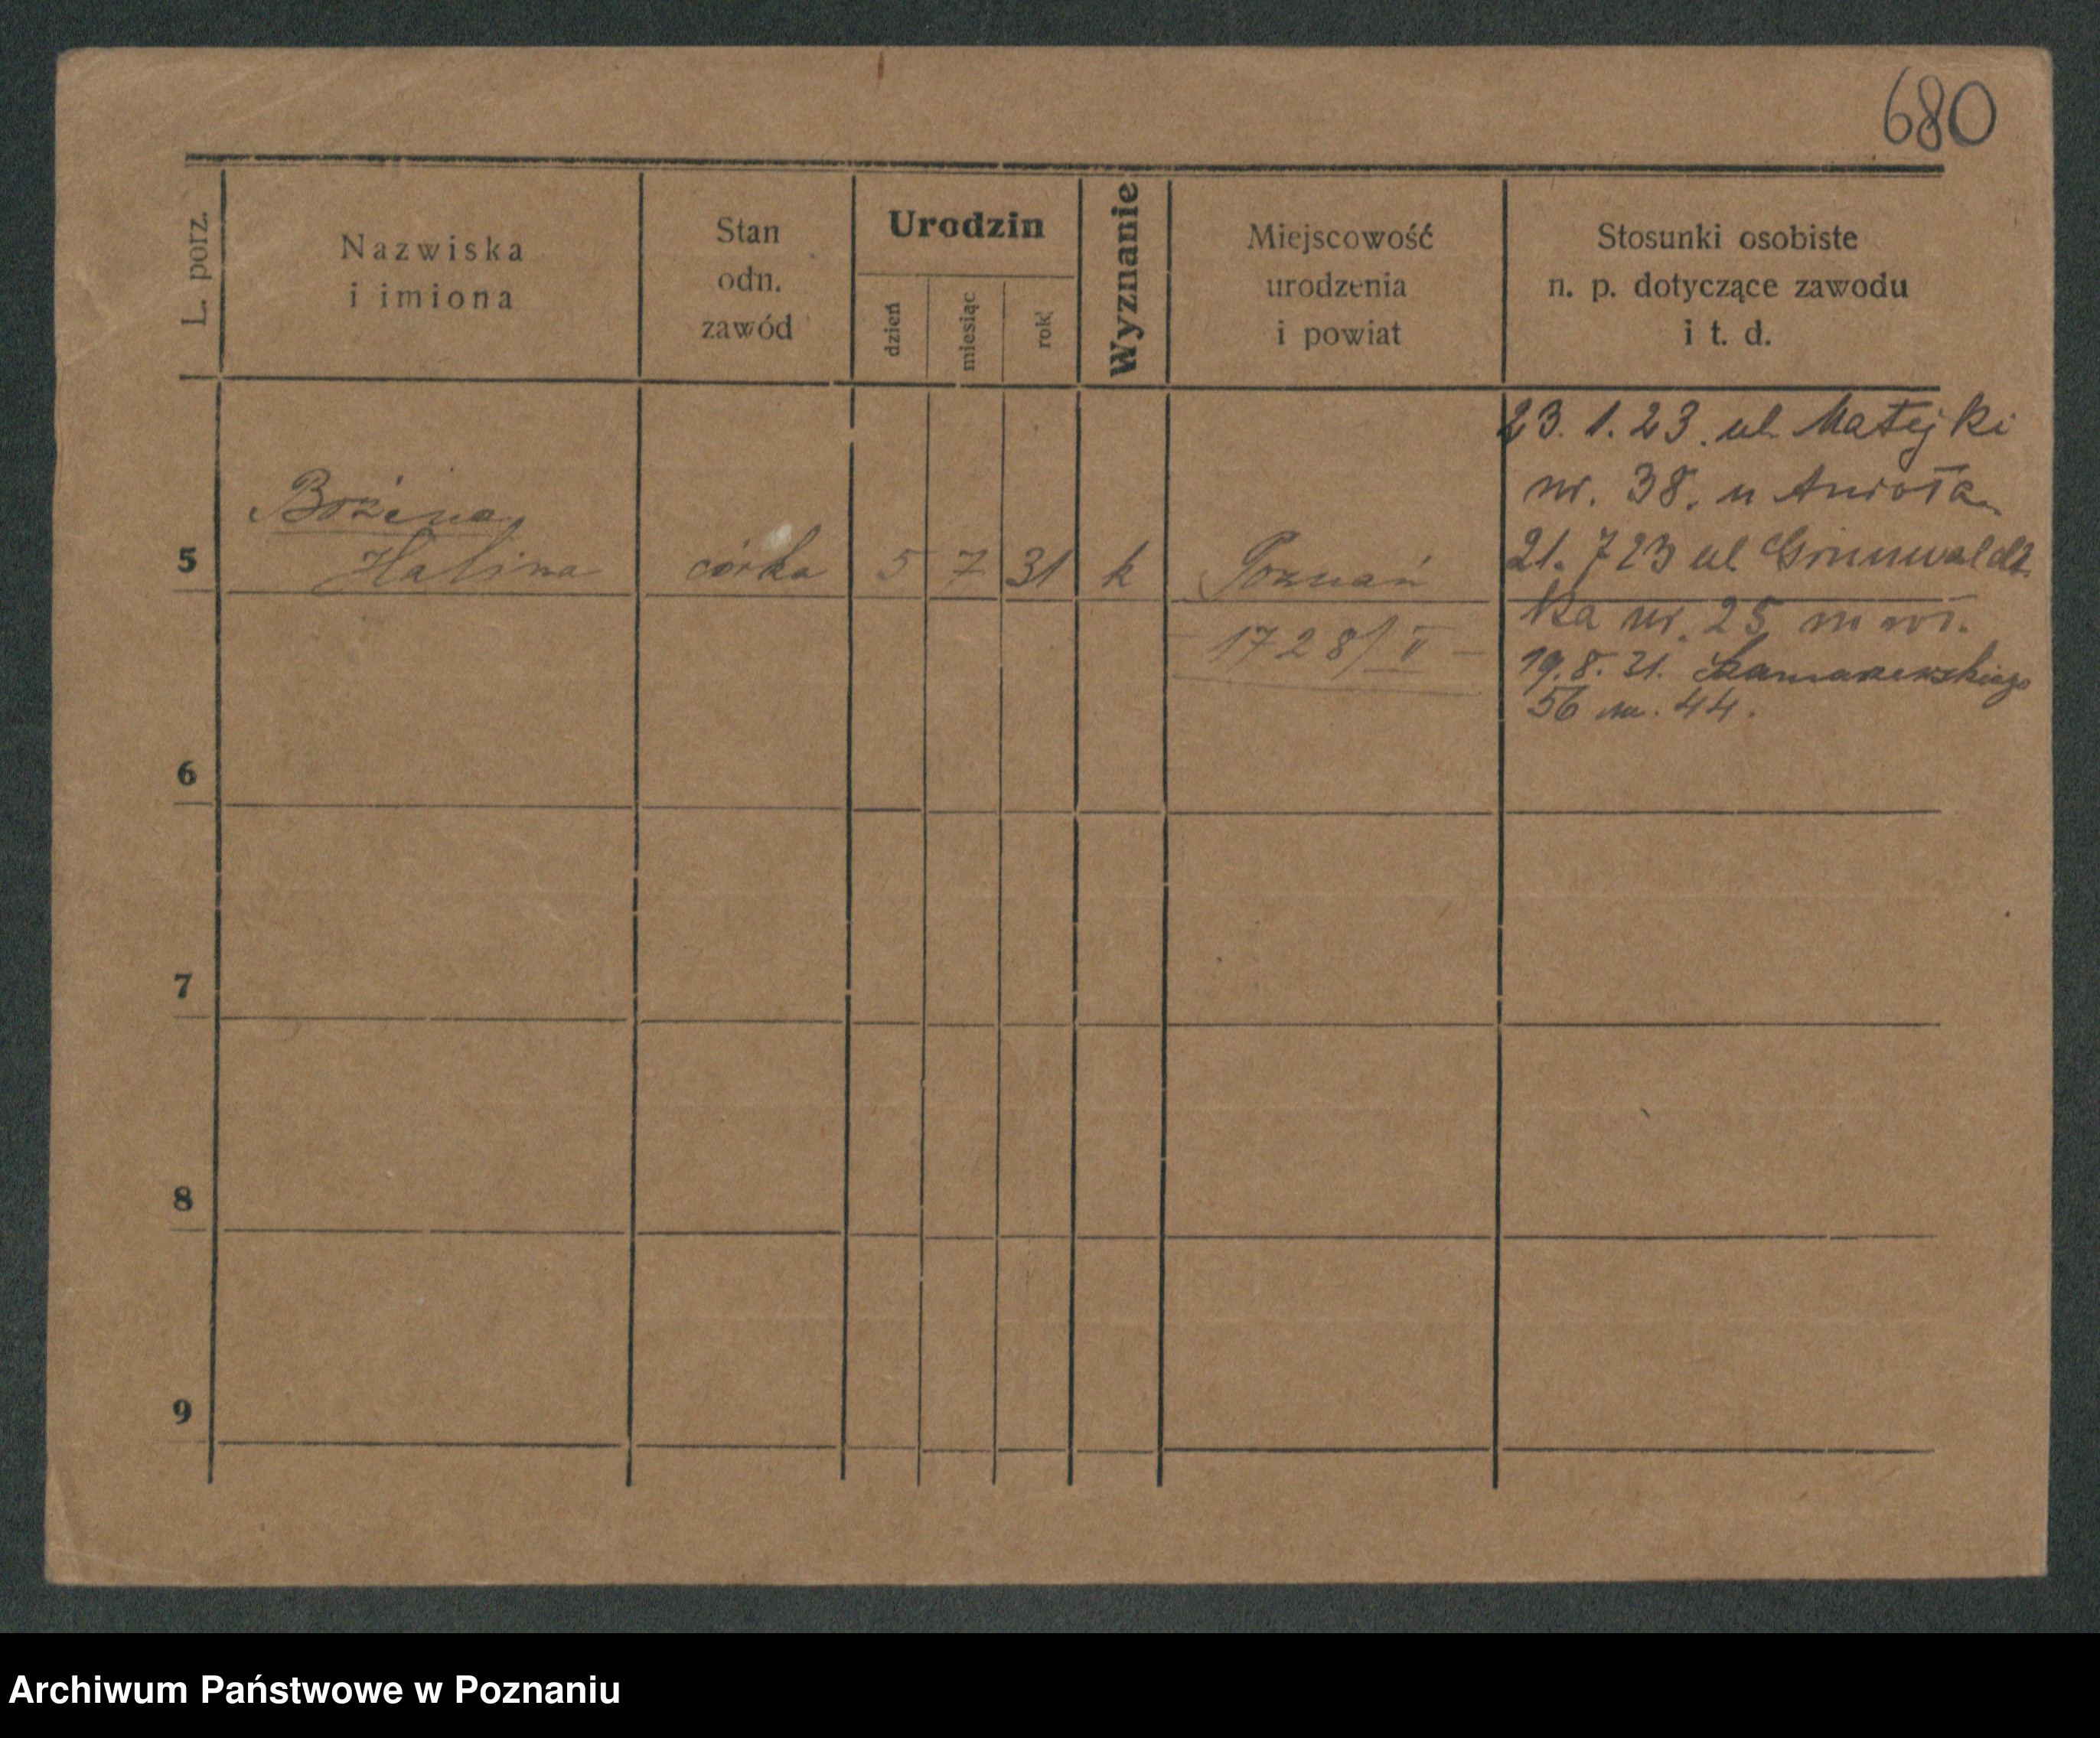 680
L. porz.
Nazwiska
i imiona
Stan
odn.
zawód
Urodzin
dzień
miesiąc
rok
Wyznanie
Miejscowość
urodzenia
i powiat
Stosunki osobiste
n. p. dotyczące zawodu
i t. d.
23. 1. 23. ul. Matejki
nr. 38. u Anioła
21. 7 23 ul Grunwaldz
ka nr. 25
19. 8. 31. Szamarzewskiego
56 m. 44.
Bożena
5 Halina córka 5 7 31 k Poznań
1728/II
6
7
8
9
Archiwum Państwowe w Poznaniu